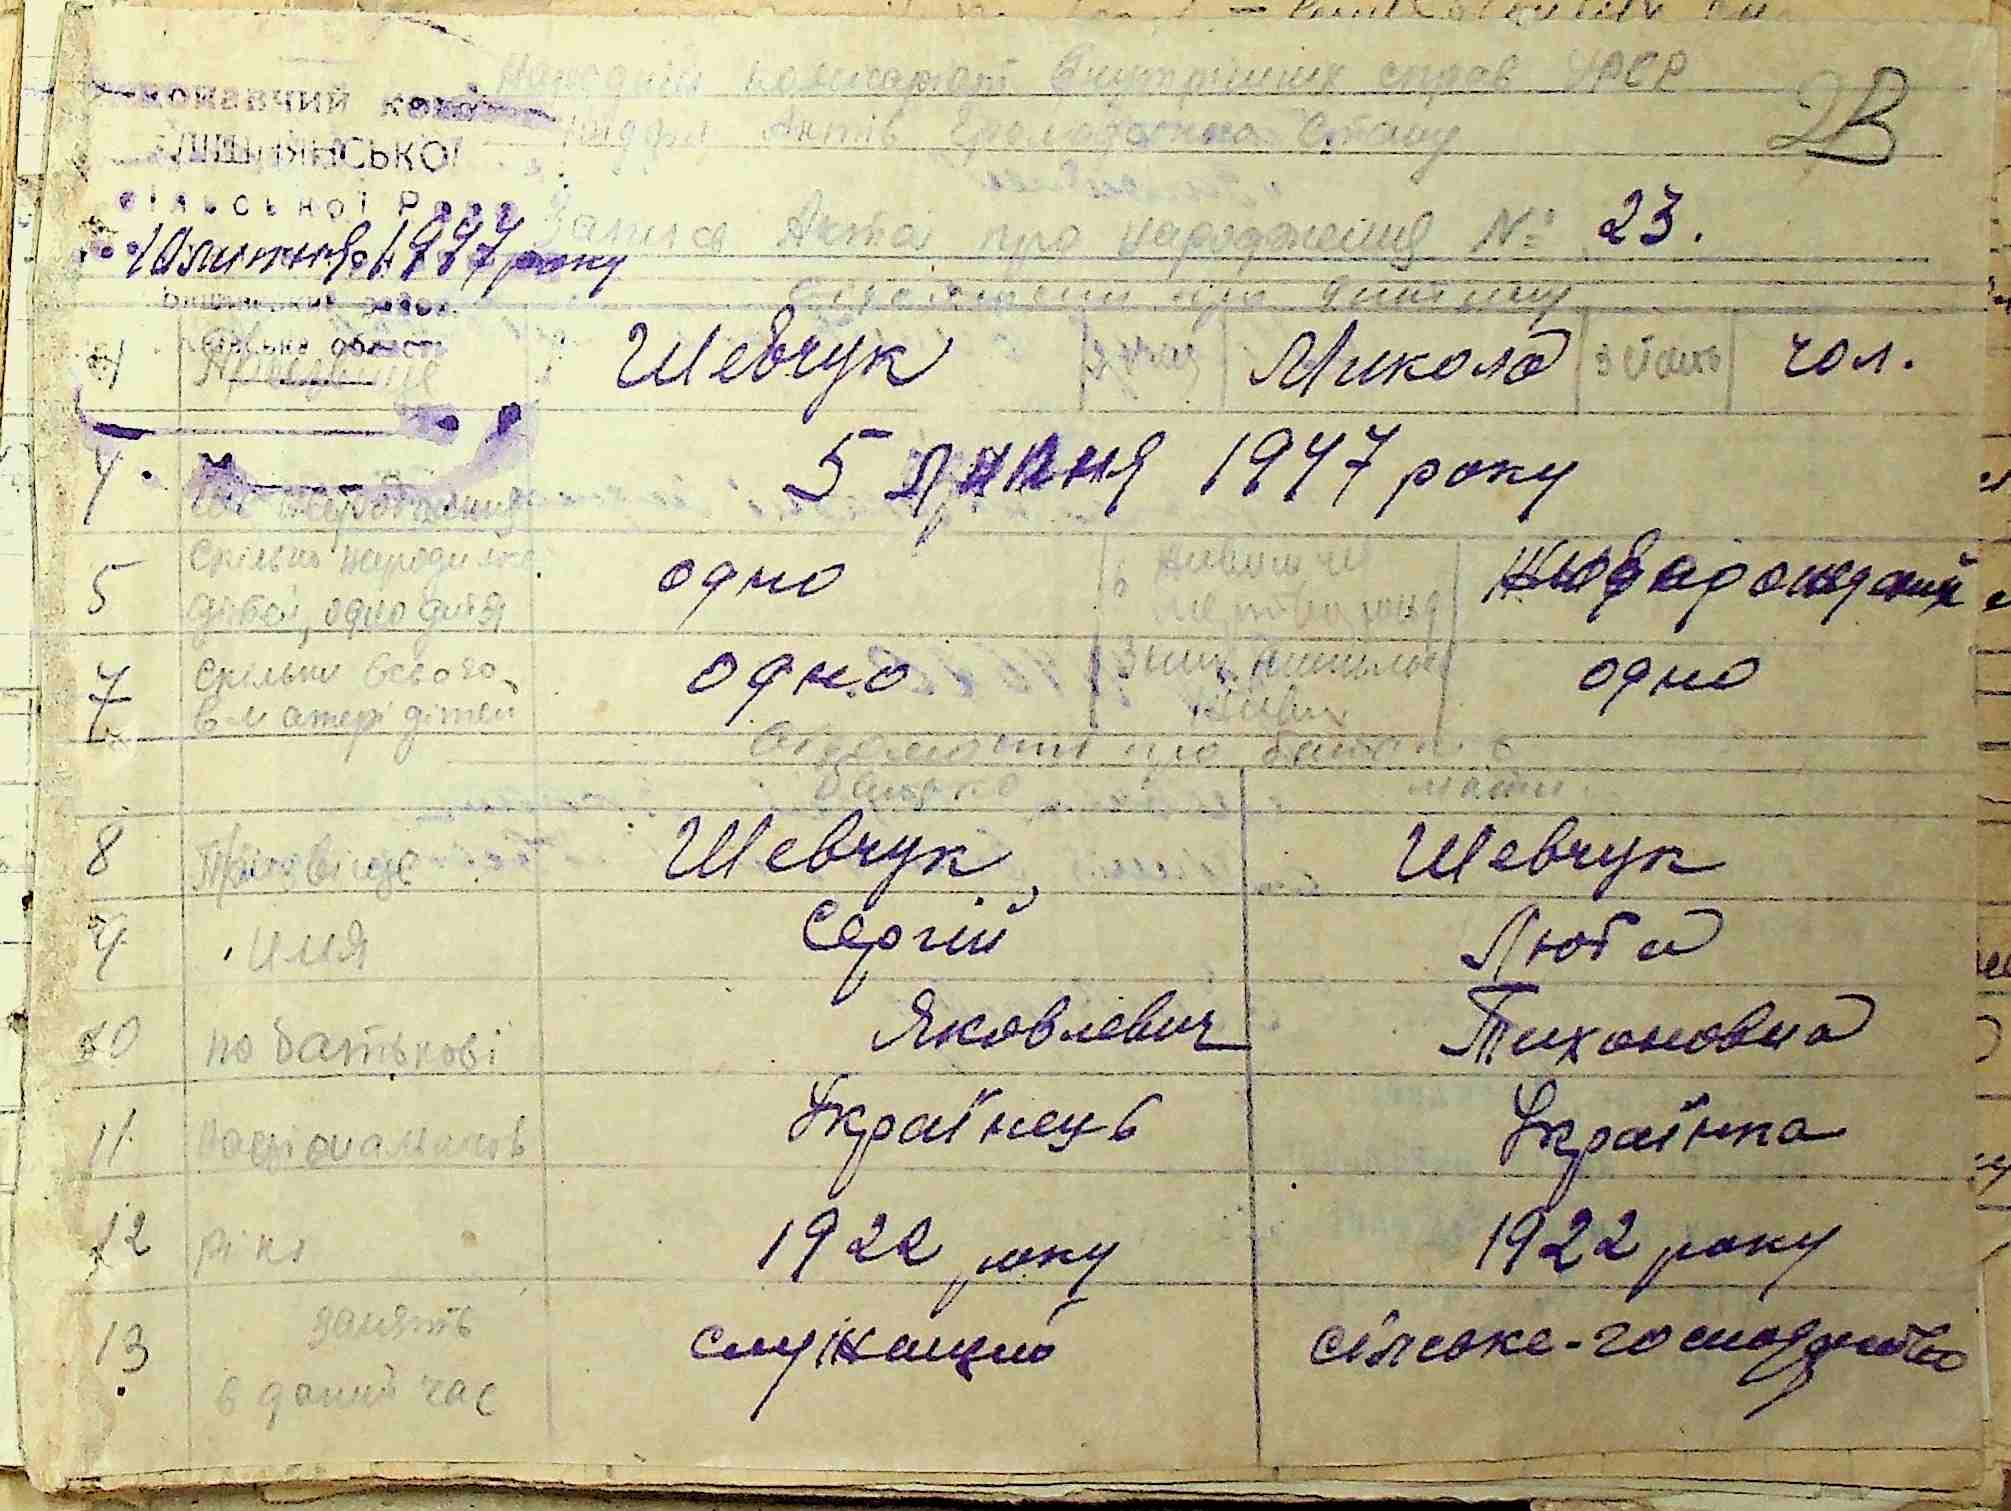 Народній комісаріат Внутрішніх справ УРСР
Відділ Актів Громадського Стану
2В
Запис Акта про народження № 23.
сільської Ради
10 липня 1947 року
область
Відомости про дитину
Прізвище Шевчук 2 Микола 3 стать чол.
4. Час народження 5 липня 1947 року
5 Скільки народилося дітей, одно дитя одно 6 Живим чи мертвонарод
7 Скільки всього в матері дітей одно З них лишилось живих одно
Відомости про батьків
батько мати
8 Прізвище Шевчук Шевчук
9 имя Сергій Люба
10 по батькові Яковлевич Тихоновна
11 Національність Українець Українка
12 рік 1922 року 1922 року
13 занять в даний час служащий сільське-господарство